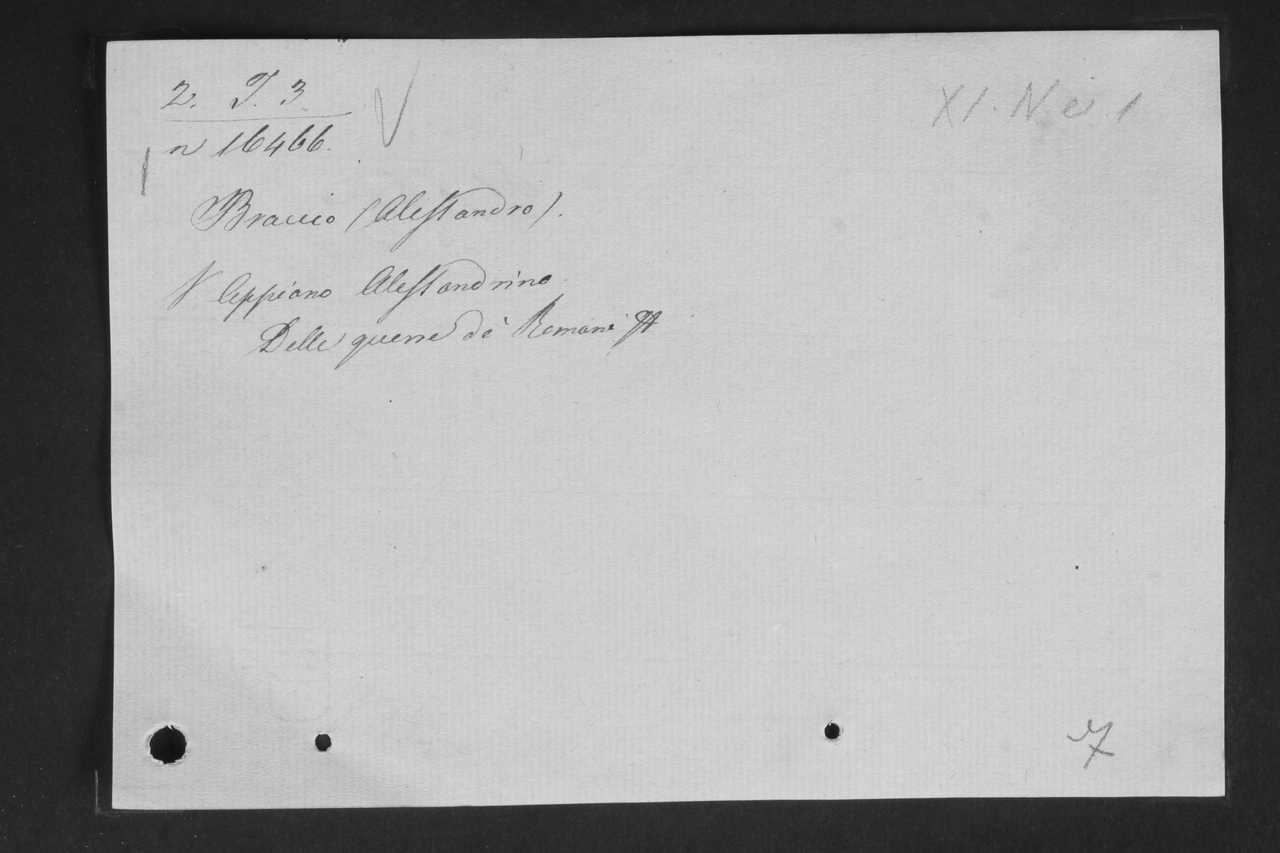 2. T. 3
XI. N e. 1
n 16466.
Braccio (Alessandro).
V Appiano Alessandrino
Delle guerre de' Romani
7